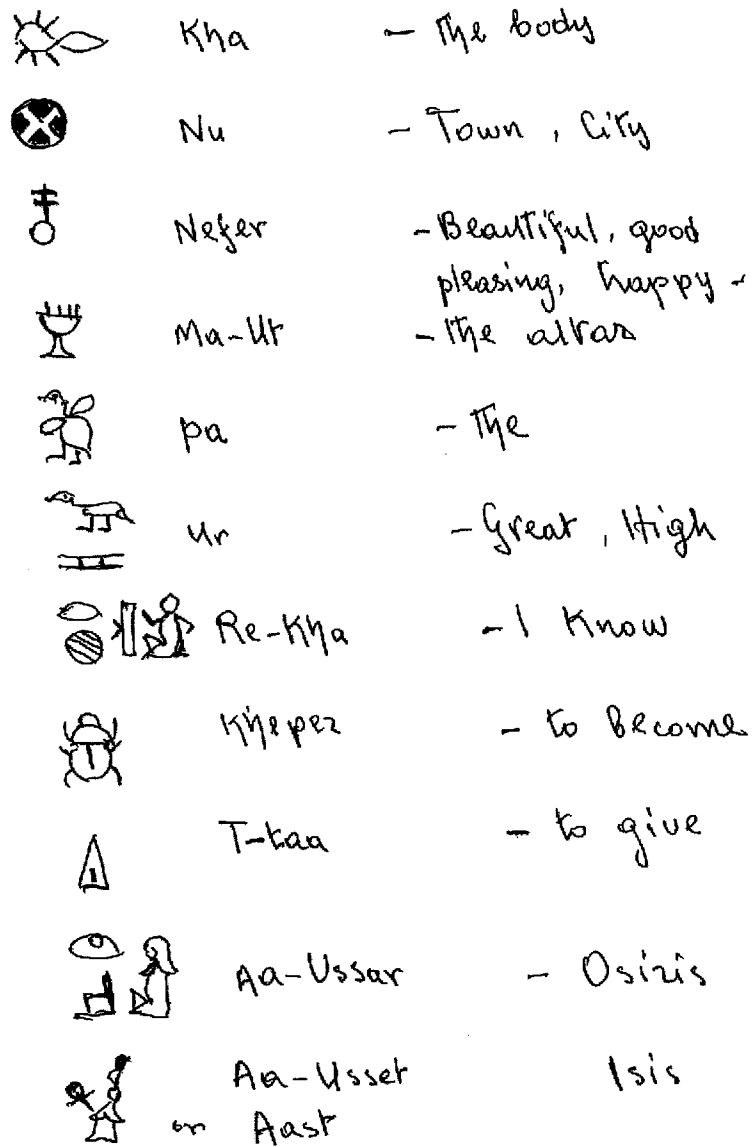 Kha - The body
Nu - Town, City
Nefer - Beautiful, good
pleasing, happy -
Ma-Ut - the altar
pa - The
Ur - Great, High
Re-Kha - I Know
Kheper - to become
T-taa - to give
Aa-Ussar - Osiris
Aa-Usset Isis
or Aast